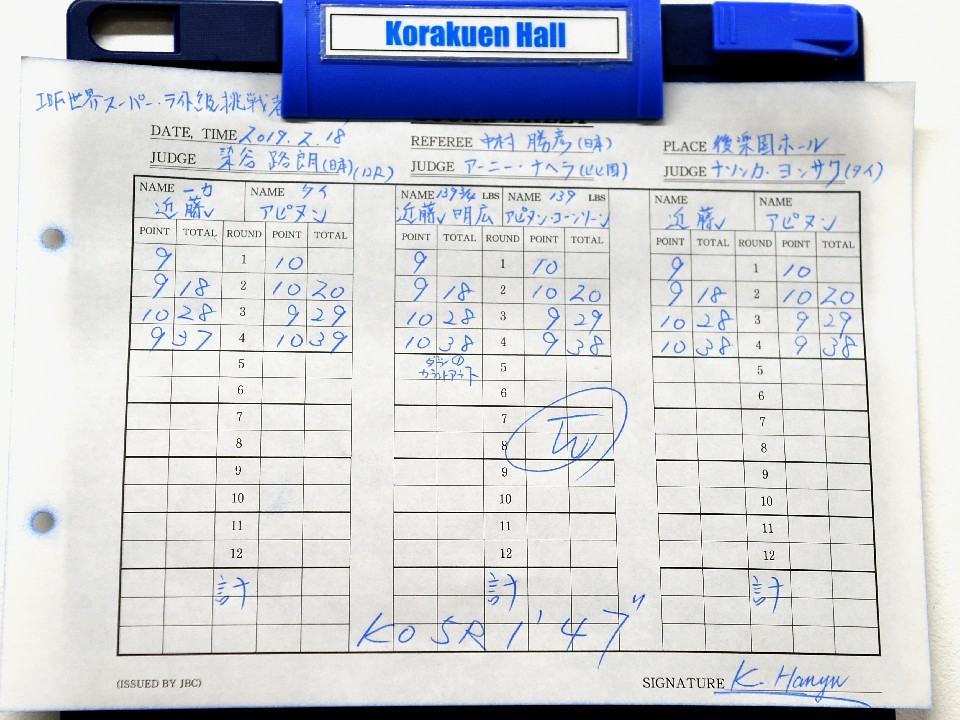 Korakuen Hall
IBF世界スーパー・ライト級挑戦者
DATE, TIME 2019.2.18
REFEREE 中村 勝彦(日本)
PLACE 後楽園ホール
JUDGE 染谷 路朗(日本)(12R)
JUDGE アーニー・ナヘラ(比国)
JUDGE (タイ)
NAME 一力 NAME タイ
近藤 アピヌン
NAME 139 3/4 LBS NAME 139 LBS
近藤 明広 アピヌン・コーンソーン
NAME NAME
近藤 アピヌン
POINT TOTAL ROUND POINT TOTAL
POINT TOTAL ROUND POINT TOTAL
POINT TOTAL ROUND POINT TOTAL
9 1 10
9 1 10
9 1 10
9 18 2 10 20
9 18 2 10 20
9 18 2 10 20
10 28 3 9 29
10 28 3 9 29
10 28 3 9 29
9 37 4 10 39
10 38 4 9 38
10 38 4 9 38
5
ダウン①
カウントアウト 5
5
6 6 6
7 7 7
8 8 8
9 9 9
10 10 10
11 11 11
12 12 12
計 計 計
KO 5R 1'47"
(ISSUED BY JBC)
SIGNATURE K. Hanyu